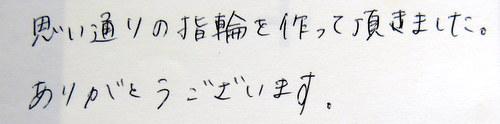 思い通りの指輪を作って頂きました。
ありがとうございます。